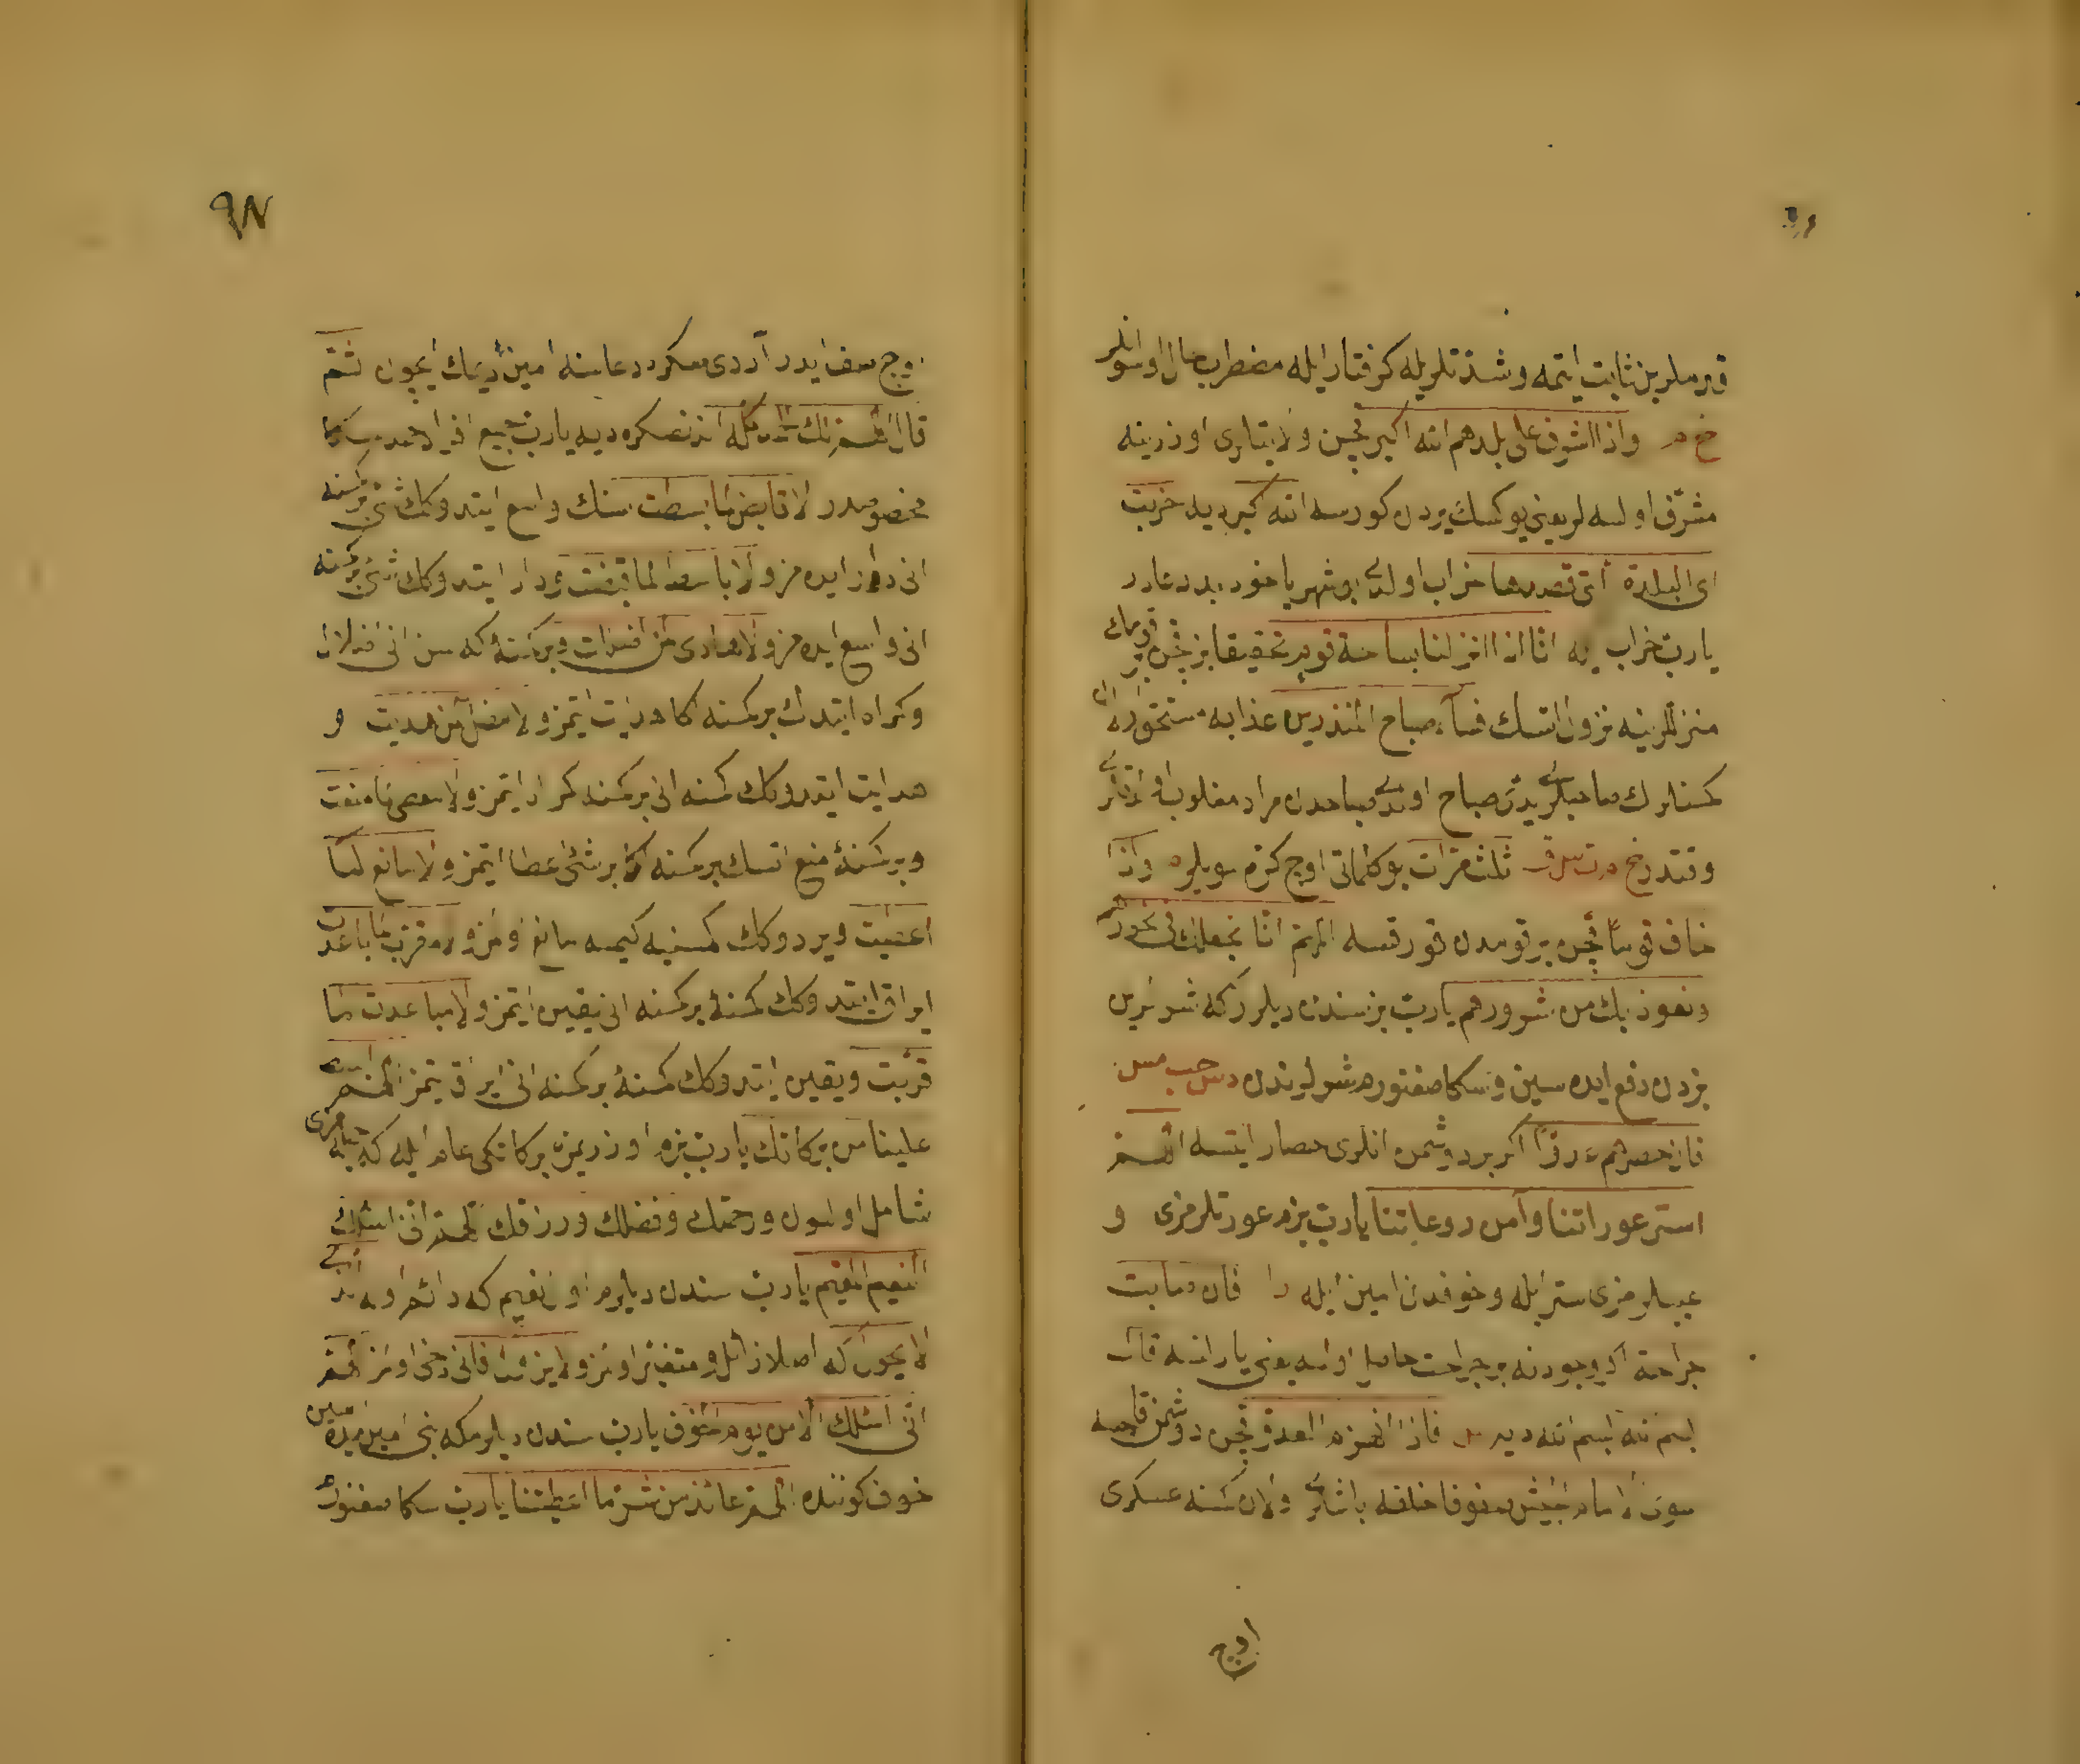 قدملرین ثابت ایتمه و شدتلریله کرفتار ایله مضطرب حال اولسونلر
خ م واذا اشرف علی بلدهم الله اکبر قچن ولایتلری اوزرینه
مشرف اولسه لر یعنی یوکسك یردن کورسه الله اکبر دیه خربت
ای البلدة التی قصدها خراب اولدی بو شهر یا خود بددعادر
یارب خراب ایله انا اذا انزلنا بساحة قوم تحقیقا بز قچن بر قومك
منزللرینه نزول اتسك فسآء صباح المنذرین عذابه مستحق اولان
کمسنلرك صباحلری یرامز صباح اولدی صباحدن مراد مغلوب اولدقلری
وقتدر خ م ت س ق ثلث مرات بو کلماتی اوچ کره سویلیه واذا
خاف قوما قچن بر قومدن قورقسه اللهم انا نجعلك فی نحورهم
ونعوذ بك من شرورهم یارب بز سندن دیلرز که شرلرین
بزدن دفع ایده سین و سکا صغنورم شرلرندن د س حب مس
فان حصرهم عدو اکر بر دوشمن انلری حصار ایتسه اللهم
استر عوراتنا وآمن روعاتنا یارب بزم عورتلرمزی و
عیبلرمزی ستر ایله و خوفدن امین ایله را فان اصابت
جراحة اکر وجودنه بر جراحت حاصل اولسه یعنی یارالنسه قال
بسم الله بسم الله دیه س فاذا انهزم العدو قچن دوشمن قاچسه
سوی الامام الجیش صفوفا خلفه باشلری اولان کمسنه عسکری
اوچ
٩٨
اوچ صف ایدر آردی صکره دعاسنه امین دیمك ایچون ثم
قال اللهم لك الحمد کله اندنصکره دیه یارب جمیع افراد حمد سکا
مخصوصدر لا قابض لما بسطت سنك واسع ایتدوکك شئی بر کمسنه
انی دار ایده مز ولا باسط لما قبضت و دار ایتدوکك شئی بر کمسنه
انی واسع ایده مز ولا هادی لمن اضللت و بر کمسنۀ که سن انی اضلال
و کمراه ایتدك بر کمسنه اکا هدایت ایتمز ولا مضل لمن هدیت و
هدایت ایتدوکك کمسنه انی بر کمسنه کمراه ایتمز ولا معطی لما منعت
و بر کمسنۀ منع اتسك بر کمسنه اکا بر شئ اعطا ایتمز ولا مانع لما
اعطیت ویردوکك کمسنیه کیمسه مانع اولمز ولا مقرب لما باعدت
ایراق ایتدوکك کمسنۀ بر کمسنه انی یقین ایتمز ولا مباعد لما
قربت و یقین ایتدوکك کمسنۀ بر کمسنه انی ایراق یتمز اللهم ابسط
علینا من برکاتك یارب بزم اوزریمزه برکاتکی عام ایله که جمیعمزی
شامل اولسون ورحمتك وفضلك ورزقك اللهم انی اسئلك
النعیم المقیم یارب سندن دیلرم اول نعیم که دائم اوله
الذی لا یحول که اصلا زائل و متغیر اولمز ولا یزول و فانی دخی اولمز اللهم
انی اسئلك الامن یوم الخوف یارب سندن دیلرم که بنی امین ایده سین
خوف کوننده اللهم عائذ من شر ما اعطیتنا یارب سکا صغنورم